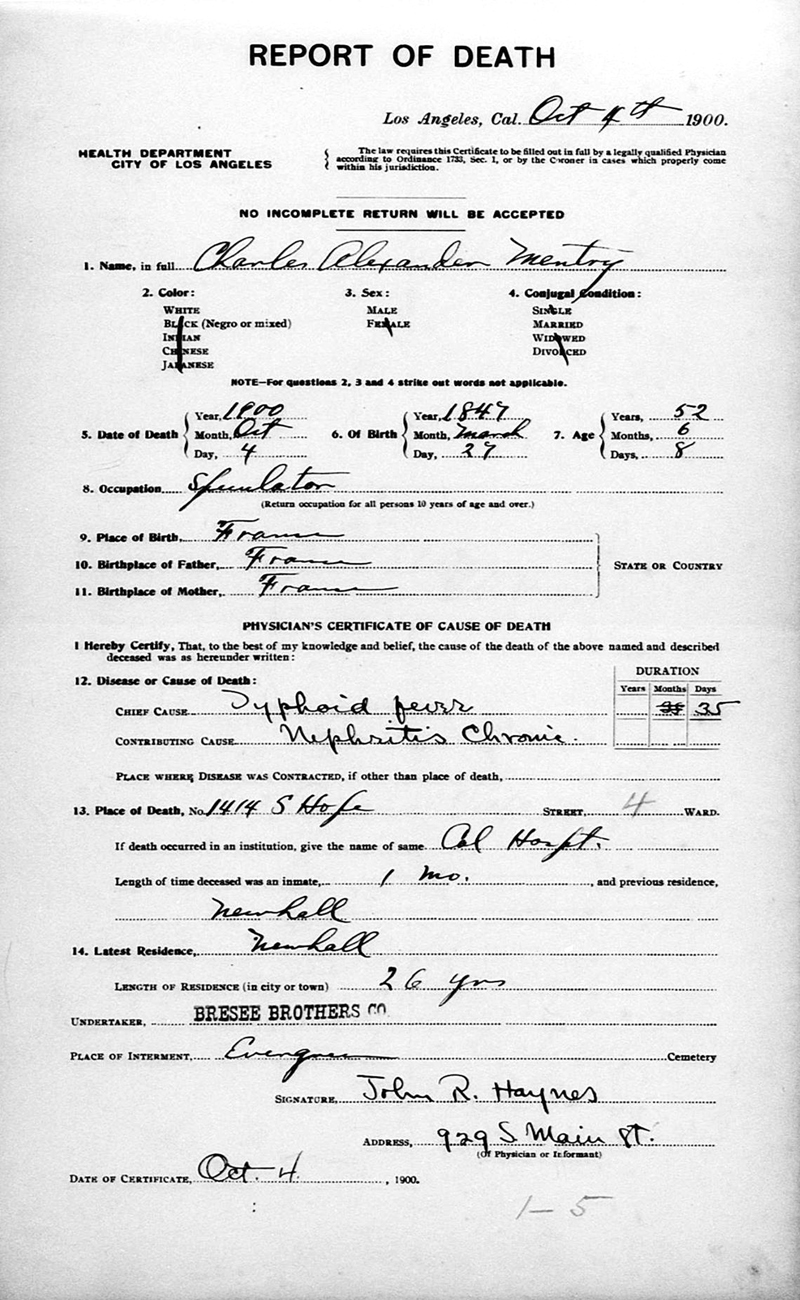 REPORT OF DEATH
Los Angeles, Cal. Oct 4th 1900.
HEALTH DEPARTMENT
CITY OF LOS ANGELES
The law requires this Certificate to be filled out in full by a legally qualified Physician
according to Ordinance 1733, Sec. 1, or by the Coroner in cases which properly come
within his jurisdiction.
NO INCOMPLETE RETURN WILL BE ACCEPTED
1. Name, in full Charles Alexander Mentry
2. Color: 3. Sex: 4. Conjugal Condition:
WHITE MALE SINGLE
BLACK (Negro or mixed) FEMALE MARRIED
INDIAN WIDOWED
CHINESE DIVORCED
JAPANESE
NOTE—For questions 2, 3 and 4 strike out words not applicable.
Year, 1900 Year, 1847 Years, 52
5. Date of Death Month, Oct 6. Of Birth Month, March 7. Age Months, 6
Day, 4 Day, 27 Days, 8
8. Occupation Speculator
(Return occupation for all persons 10 years of age and over.)
9. Place of Birth, France
10. Birthplace of Father, France STATE OR COUNTRY
11. Birthplace of Mother, France
PHYSICIAN'S CERTIFICATE OF CAUSE OF DEATH
I Hereby Certify, That, to the best of my knowledge and belief, the cause of the death of the above named and described
deceased was as hereunder written:
DURATION
12. Disease or Cause of Death: Years Months Days
CHIEF CAUSE Typhoid fever 35
CONTRIBUTING CAUSE Nephritis Chronic.
PLACE WHERE DISEASE WAS CONTRACTED, if other than place of death,
13. Place of Death, No. 1414 S Hope STREET, 4 WARD.
If death occurred in an institution, give the name of same. Cal Hospt.
Length of time deceased was an inmate, 1 mo. , and previous residence,
Newhall
14. Latest Residence, Newhall
LENGTH OF RESIDENCE (in city or town) 26 yrs
UNDERTAKER, BRESEE BROTHERS CO
PLACE OF INTERMENT, Evergreen Cemetery
SIGNATURE, John R. Haynes
ADDRESS, 929 S Main St.
(Of Physician or Informant)
DATE OF CERTIFICATE, Oct. 4 , 1900.
1-5